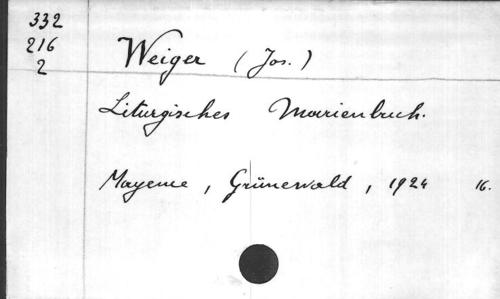 332
216
2
Weiger (Jos.)
Liturgisches Marienbuch.
Mayence, Grünewald, 1924 16.